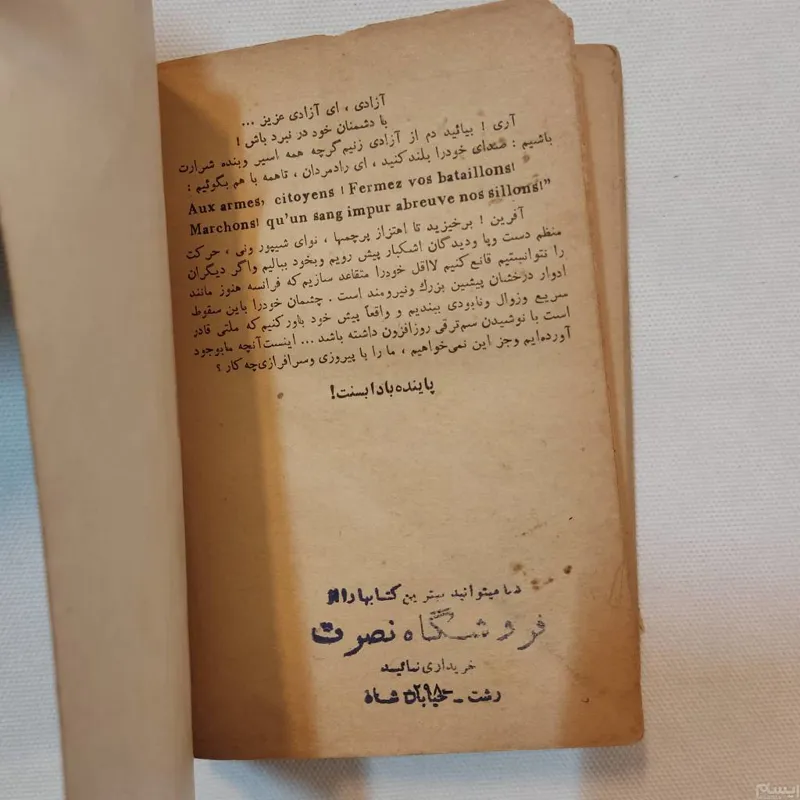 آزادی ، ای آزادی عزیز ...
با دشمنان خود در نبرد باش !
آری ! بیائید دم از آزادی زنیم گرچه همه اسیر وبنده شرارت
باشیم : صدای خودرا بلند کنید ، ای رادمردان ، تاهمه با هم بگوئیم :
Aux armes, citoyens ! Fermez vos bataillons!
Marchons! qu'un sang impur abreuve nos sillons!”
آفرین ! برخیزید تا اهتزاز پرچمها ، نوای شیپور ونی ، حرکت
منظم دست وپا ودیدگان اشکبار پیش رویم وبخود ببالیم واگر دیگران
را نتوانستیم قانع کنیم لااقل خودرا متقاعد سازیم که فرانسه هنوز مانند
ادوار درخشان پیشین بزرك ونیرومند است . چشمان خودرا باین سقوط
سریع وزوال ونابودی ببندیم و واقعاً پیش خود باور کنیم که ملتی قادر
است با نوشیدن سم ترقی روزافزون داشته باشد ... اینست آنچه مابوجود
آورده‌ایم وجز این نمی‌خواهیم ، ما را با پیروزی وسرافرازی چه کار ؟
پاینده باد ابسنت!
میتوانید بهترین کتابها را از
فروشگاه نصرت
خریداری نمائید
رشت - خیابان شاه
ایسام